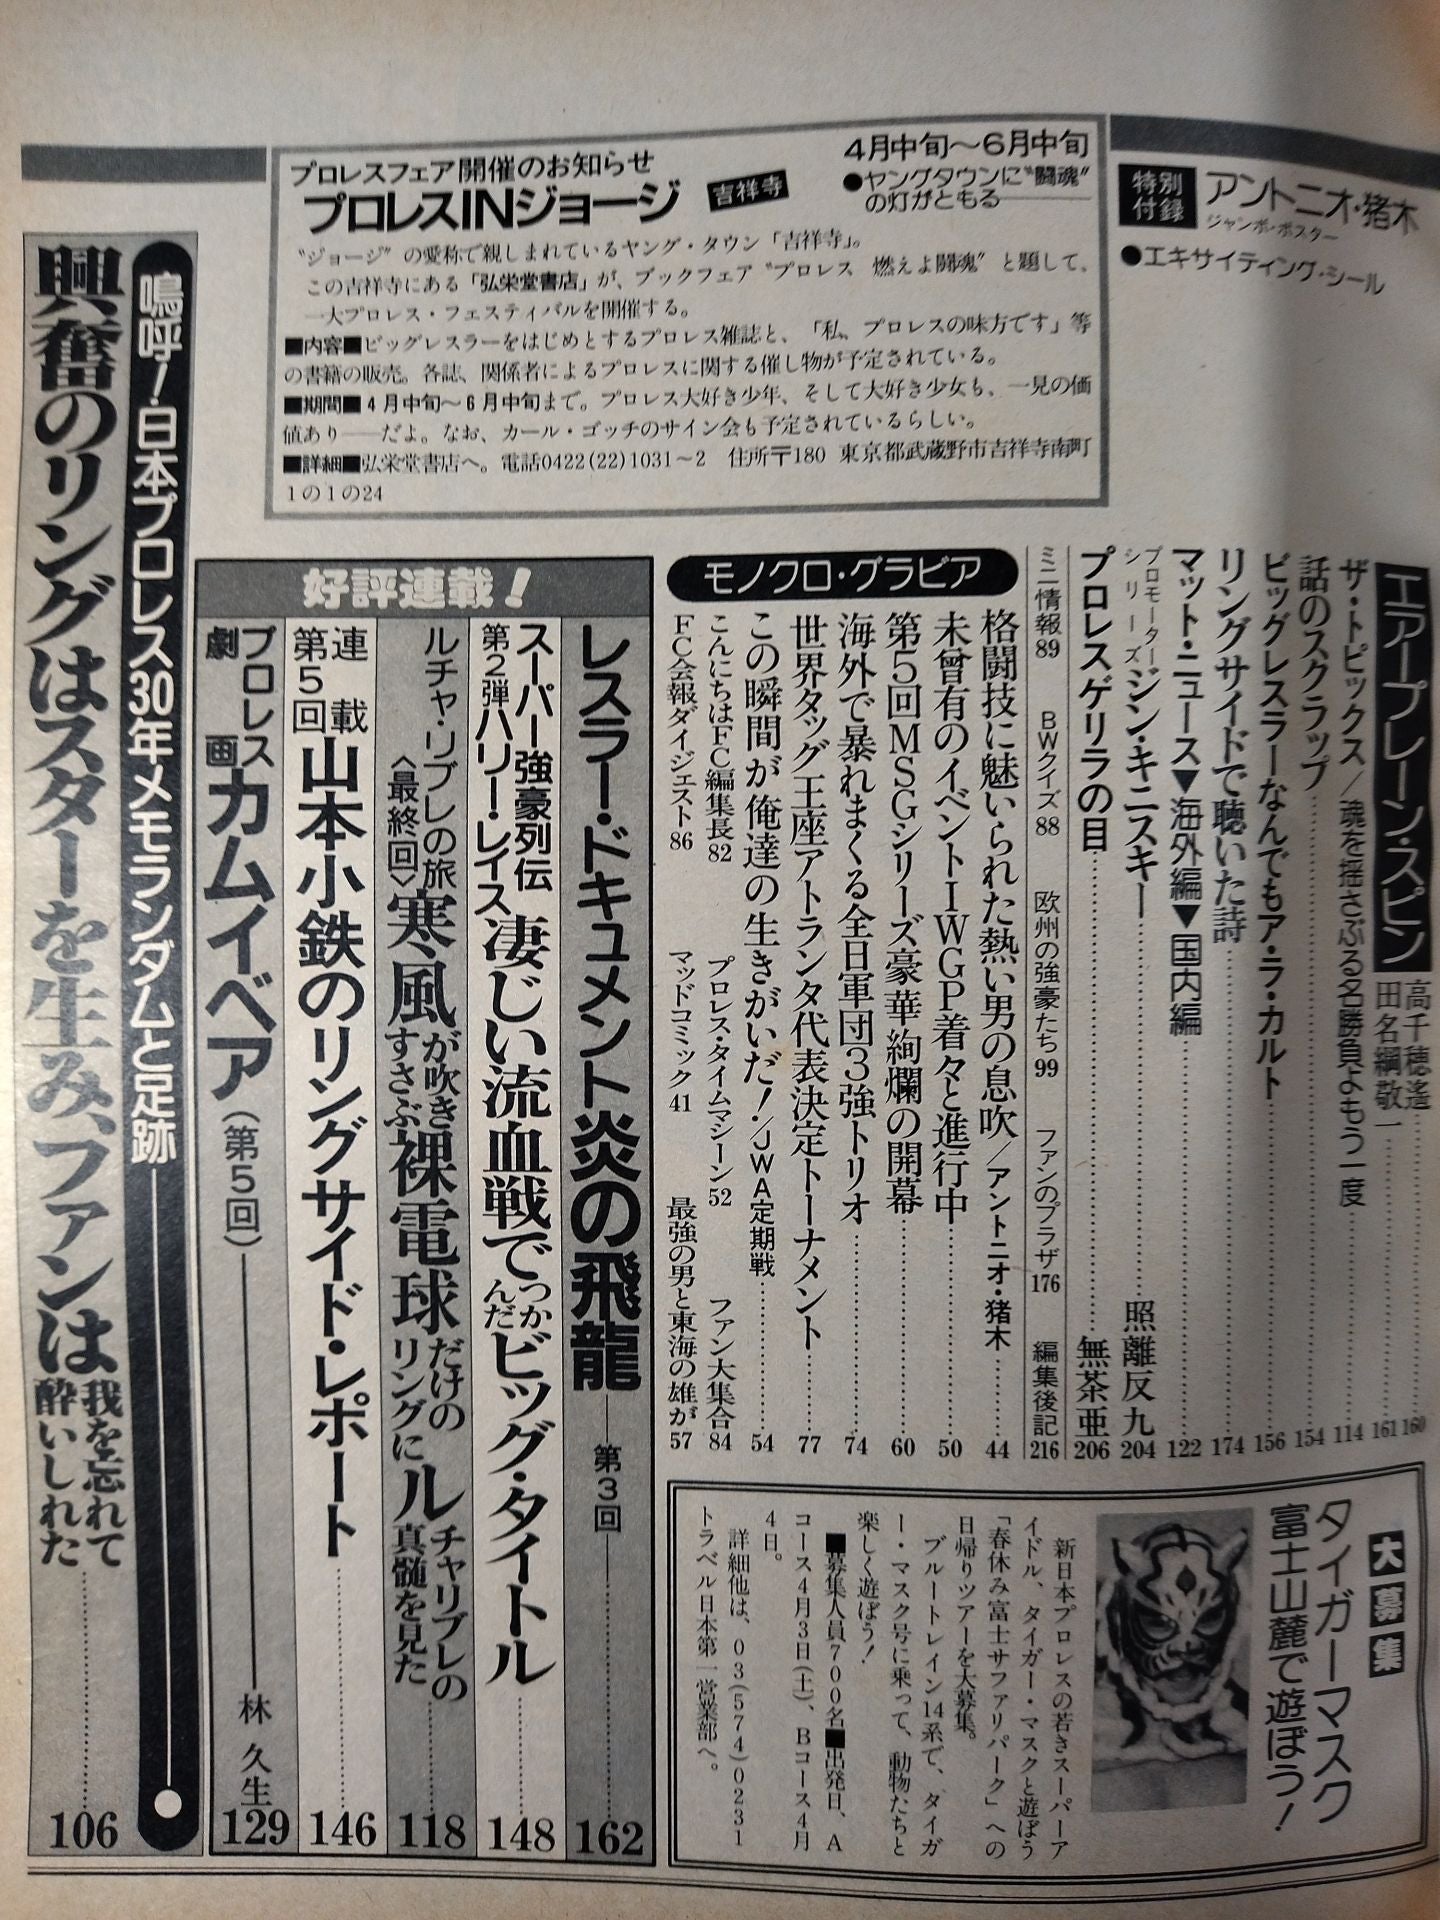 特別
付録
アントニオ・猪木
ジャンボ・ポスター
●エキサイティング・シール
プロレスフェア開催のお知らせ
プロレスINジョージ
吉祥寺
4月中旬〜6月中旬
●ヤングタウンに〝闘魂〟
の灯がともる
〝ジョージ〟の愛称で親しまれているヤング・タウン「吉祥寺」。
この吉祥寺にある「弘栄堂書店」が、ブックフェア〝プロレス 燃えよ闘魂〟と題して、
一大プロレス・フェスティバルを開催する。
■内容■ビッグレスラーをはじめとするプロレス雑誌と、「私、プロレスの味方です」等
の書籍の販売。各誌、関係者によるプロレスに関する催し物が予定されている。
■期間■4月中旬〜6月中旬まで。プロレス大好き少年、そして大好き少女も、一見の価
値あり――だよ。なお、カール・ゴッチのサイン会も予定されているらしい。
■詳細■弘栄堂書店へ。電話0422(22)1031〜2 住所〒180 東京都武蔵野市吉祥寺南町
1の1の24
エアープレーン・スピン
高千穂遙 160
田名綱敬一 161
ザ・トピックス/魂を揺さぶる名勝負よもう一度 114
話のスクラップ 154
ビッグレスラーなんでもア・ラ・カルト 156
リングサイドで聴いた詩 174
マット・ニュース▼海外編▼国内編 122
プロモーター
シリーズ
ジン・キニスキー 照離反九 204
プロレスゲリラの目 無茶亜 206
ミニ情報89 BWクイズ88 欧州の強豪たち99 ファンのプラザ176 編集後記216
モノクロ・グラビア
格闘技に魅いられた熱い男の息吹/アントニオ・猪木 44
未曾有のイベントIWGP着々と進行中 50
第5回MSGシリーズ豪華絢爛の開幕 60
海外で暴れまくる全日軍団3強トリオ 74
世界タッグ王座アトランタ代表決定トーナメント 77
この瞬間が俺達の生きがいだ!/JWA定期戦 54
こんにちはFC編集長82 プロレス・タイムマシーン52 ファン大集合84
FC会報ダイジェスト86 マッドコミック41 最強の男と東海の雄が57
大募集
タイガーマスク
富士山麓で遊ぼう!
新日本プロレスの若きスーパーア
イドル、タイガー・マスクと遊ぼう
「春休み富士サファリパーク」への
日帰りツアーを大募集。
ブルートレイン14系で、タイガ
ー・マスク号に乗って、動物たちと
楽しく遊ぼう!
■募集人員700名■出発日、A
コース4月3日(土)、Bコース4月
4日。
詳細他は、03(574)0231
トラベル日本第一営業部へ。
好評連載!
レスラー・ドキュメント炎の飛龍 第3回 162
スーパー強豪列伝
第2弾ハリー・レイス
凄じい流血戦でつかんだビッグ・タイトル 148
ルチャ・リブレの旅
〈最終回〉
寒風が吹きすさぶ裸電球だけのリングにルチャリブレの真髄を見た 118
連載
第5回
山本小鉄のリングサイド・レポート 146
プロレス
劇画
カムイベア(第5回) 林久生 129
嗚呼!日本プロレス30年メモランダムと足跡
興奮のリングはスターを生み、ファンは我を忘れて酔いしれた 106